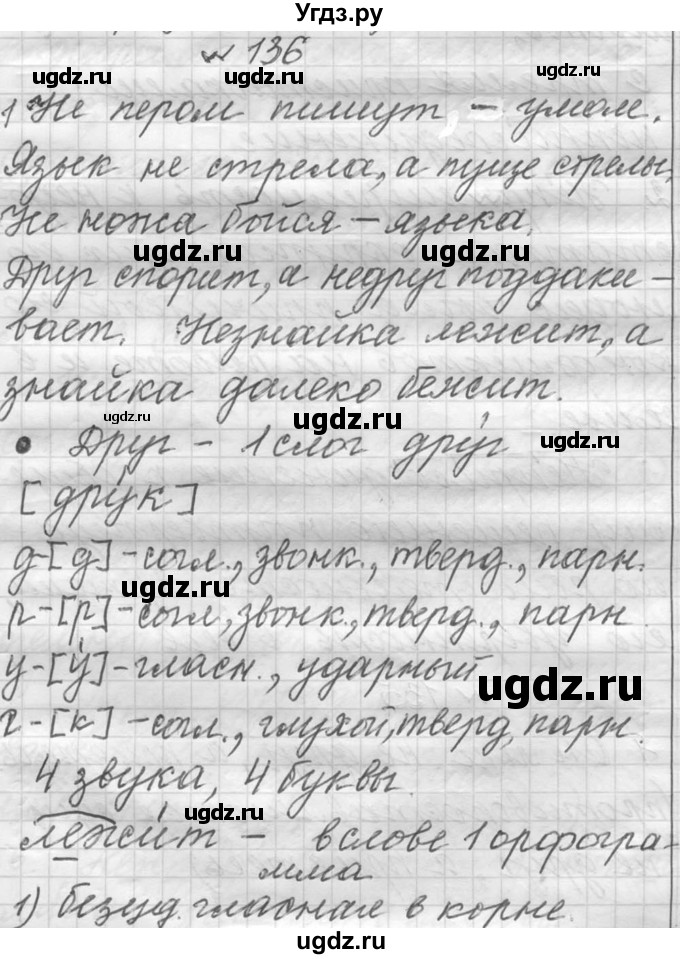 Угдз.ру
№ 136
ugdz.ru ugdz.ru
1 Не пером пишут, – умом.
ugdz.ru ugdz.ru
Язык не стрела, а пуще стрелы,
Не ножа бойся – языка.
ugdz.ru ugdz.ru
Друг спорит, а недруг поддаки –
вает. Незнайка лежит, а
ugdz.ru ugdz.ru
знайка далеко бежит.
ugdz.ru ugdz.ru
Друг – 1 слог друг
ugdz.ru
[друк]
д-[д]-согл., звонк., тверд., парн.
ugdz.ru
р-[р]-согл, звонк., тверд., парн.
у-[у́]-гласн., ударный
ugdz.ru
г-[к] -согл., глухой, тверд, парн.
4 звука, 4 буквы
ugdz.ru
лежи́т – в слове 1 орфогра-
мма
1) безуд. гласная в корне.
ugdz.ru